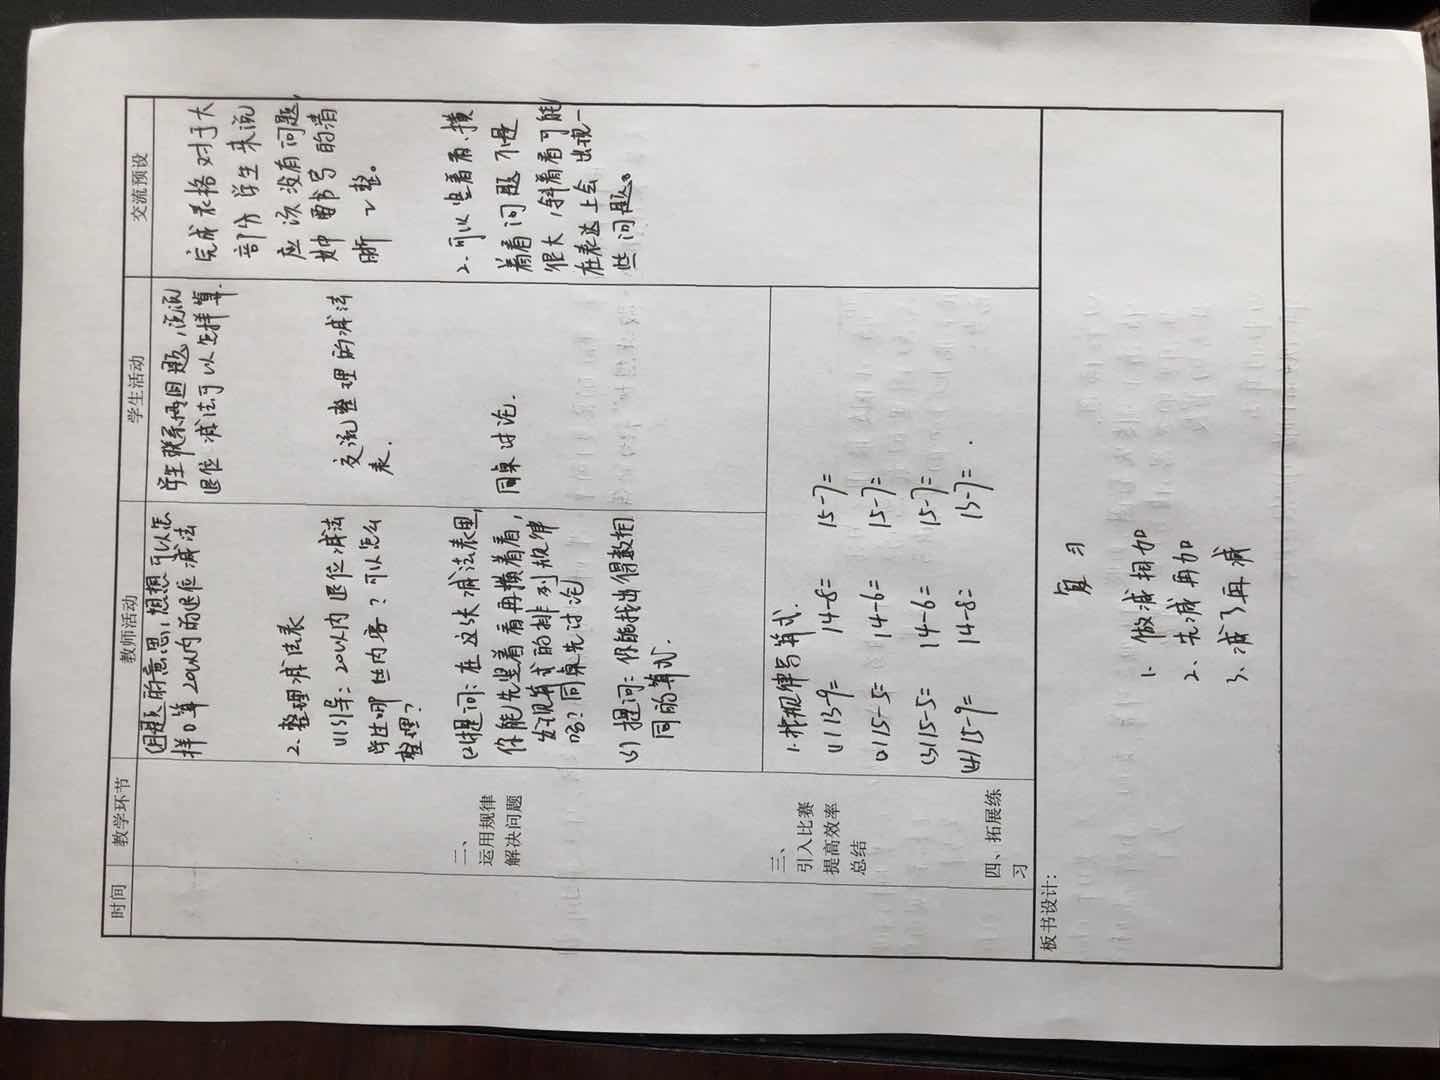 时间
教学环节
教师活动
学生活动
交流预设
题的意思,想想可以怎
样口算20以内的退位减法
2.整理减法表
(1)引导:20以内退位减法
学生哪些内容?可以怎么
整理?
(2)提问:在这张减法表里,
你能先竖着看再横着看,
发现算式的排列规律
吗?同桌先讨论
(3)提问:你能找出得数相
同的算式
学生联系两困题,说说
退位减法可以怎样算.
交流整理的减法
表.
同桌讨论.
完成表格对于大
部分学生来说
应该没有问题,
书写的清
晰 整。
2.可以竖着看、横
着看问题不是
很大,斜着看可能
在表达上会出现一
些问题。
二、
运用规律
解决问题
三、
引入比赛
提高效率
总结
四、拓展练
习
1.找规律写算式.
(1)13-9= 14-8= 15-7=
(2)15-5= 14-6= 15-7=
(3)15-5= 14-6= 15-7=
(4)15-9= 14-8= 13-7= .
板书设计:
复习
1、做减相加
2、先减再加
3、减了再减